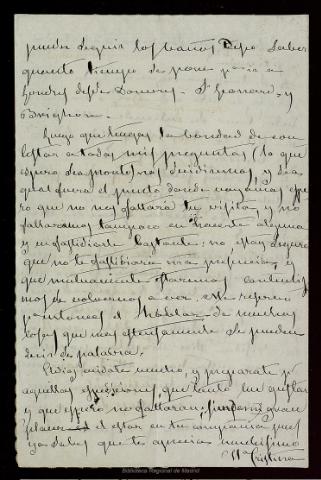 pueda seguir los baños. Deseo saber
cuanto tiempo se pone para ir a
Londres desde Douvres - St Leonard y
Brighton.
Luego que tengas la bondad de con
testar a todas mis preguntas (lo que
espero sea pronto) nos decidiremos, y sea
cual fuera el punto donde vayamos espe
ro que no nos faltará tu visita, y no
faltaremos tampoco en hacerte alguna
y en fastidiarte bastante: no estoy segura
que no te fastidiará mi presencia, y
que mutuamente estaremos contentísi
mos de volvernos a ver. Me reservo
pa entonces el hablar de muchas
cosas que mas estensamente se pueden
decir de palabra.
Adios, cuidate mucho, y preparate pa
aquellas espresiones, que tanto me gustan
y que espero no faltaran, siendo mi gran
placer el estar en tu compañia pues
ya sabes que te aprecia muchísimo
Ma Cristina
Biblioteca Regional de Madrid